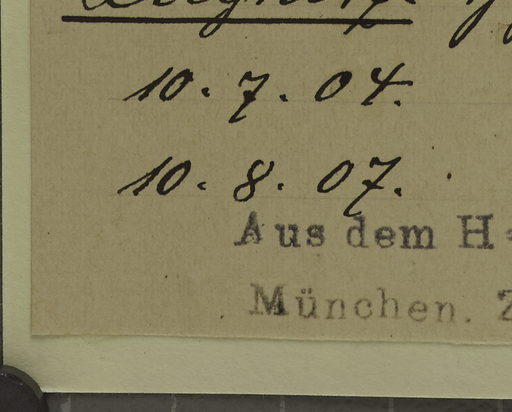 10. 7. 04.
10. 8. 07.
Aus dem H
München. 2